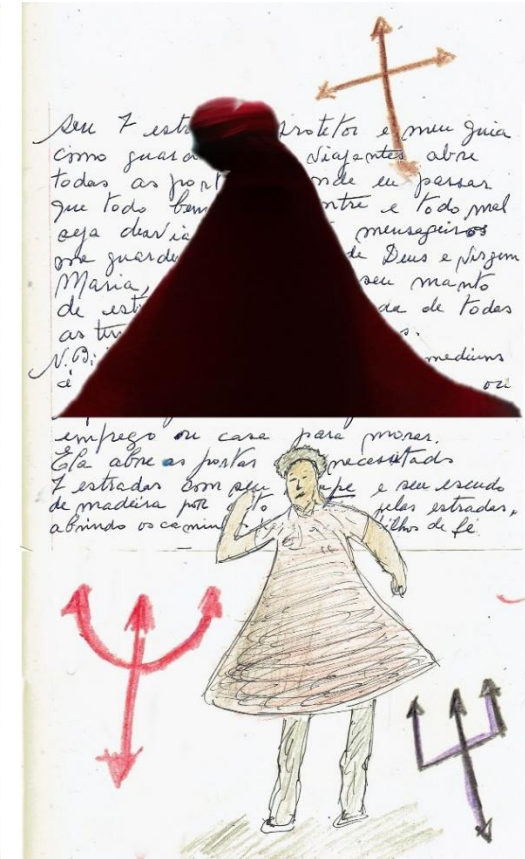 Seu 7 estr protetor e meu guia
como guard viajantes abre
todas as port nde eu passar
que todo bem ntre e todo mal
seja desvia mensageiros
me guarde de Deus e Virgem
Maria, seu manto
de estr da de todas
as
mediuns
é ou
emprego ou casa para morar.
Ela abre as portas necessitado
7 estradas com seu pe e seu escudo
de madeira por pelas estradas,
abrindo os camin ilhos de fé.